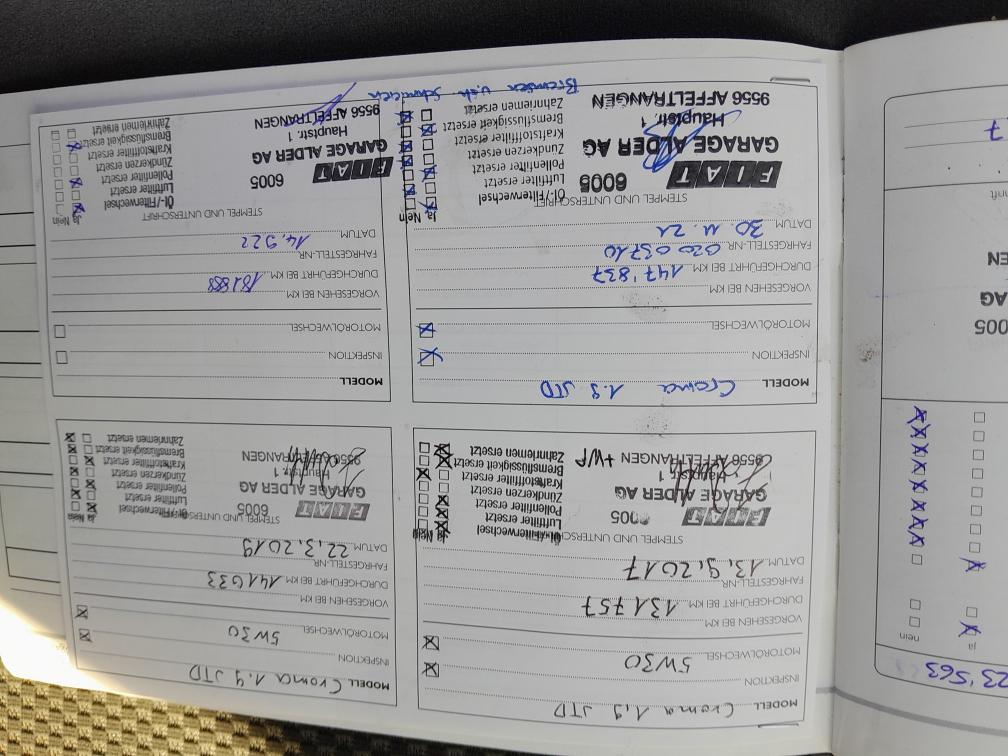 23'563
ja
nein
6005
AG
EN
7
MODELL Croma 1,9 JTD
INSPEKTION
5W30
MOTORÖLWECHSEL
VORGESEHEN BEI KM
DURCHGEFÜHRT BEI KM 131757
FAHRGESTELL-NR.
DATUM 13,9,2017
STEMPEL UND UNTERSCHRIFT
Ja Nein
FIAT
Öl-/Filterwechsel
Luftfilter ersetzt
Pollenfilter ersetzt
Zündkerzen ersetzt
Kraftstofffilter ersetzt
Bremsflüssigkeit ersetzt
Zahnriemen ersetzt
GARAGE ALDER AG
Hauptstr. 1
9556 AFFELTRANGEN
+WP
MODELL Croma 1.9 JTD
INSPEKTION
5W30
MOTORÖLWECHSEL
VORGESEHEN BEI KM
DURCHGEFÜHRT BEI KM 141033
FAHRGESTELL-NR.
DATUM 22,3,2019
STEMPEL UND UNTERSCHRIFT
Ja Nein
FIAT 6005
Öl-/Filterwechsel
Luftfilter ersetzt
Pollenfilter ersetzt
Zündkerzen ersetzt
Kraftstofffilter ersetzt
Bremsflüssigkeit ersetzt
Zahnriemen ersetzt
GARAGE ALDER AG
Hauptstr. 1
9556 AFFELTRANGEN
MODELL Croma 1.9 JTD
INSPEKTION
MOTORÖLWECHSEL
VORGESEHEN BEI KM
DURCHGEFÜHRT BEI KM 147'837
FAHRGESTELL-NR. 02003710
DATUM 30.11.21
STEMPEL UND UNTERSCHRIFT
Ja Nein
FIAT 6005
Öl-/Filterwechsel
Luftfilter ersetzt
Pollenfilter ersetzt
Zündkerzen ersetzt
Kraftstofffilter ersetzt
Bremsflüssigkeit ersetzt
Zahnriemen ersetzt
GARAGE ALDER AG
Hauptstr. 1
9556 AFFELTRANGEN
Bremsen
MODELL
INSPEKTION
MOTORÖLWECHSEL
VORGESEHEN BEI KM
DURCHGEFÜHRT BEI KM
FAHRGESTELL-NR.
DATUM 14.922
STEMPEL UND UNTERSCHRIFT
Ja Nein
FIAT 6005
Öl-/Filterwechsel
Luftfilter ersetzt
Pollenfilter ersetzt
Zündkerzen ersetzt
Kraftstofffilter ersetzt
Bremsflüssigkeit ersetzt
Zahnriemen ersetzt
GARAGE ALDER AG
Hauptstr. 1
9556 AFFELTRANGEN